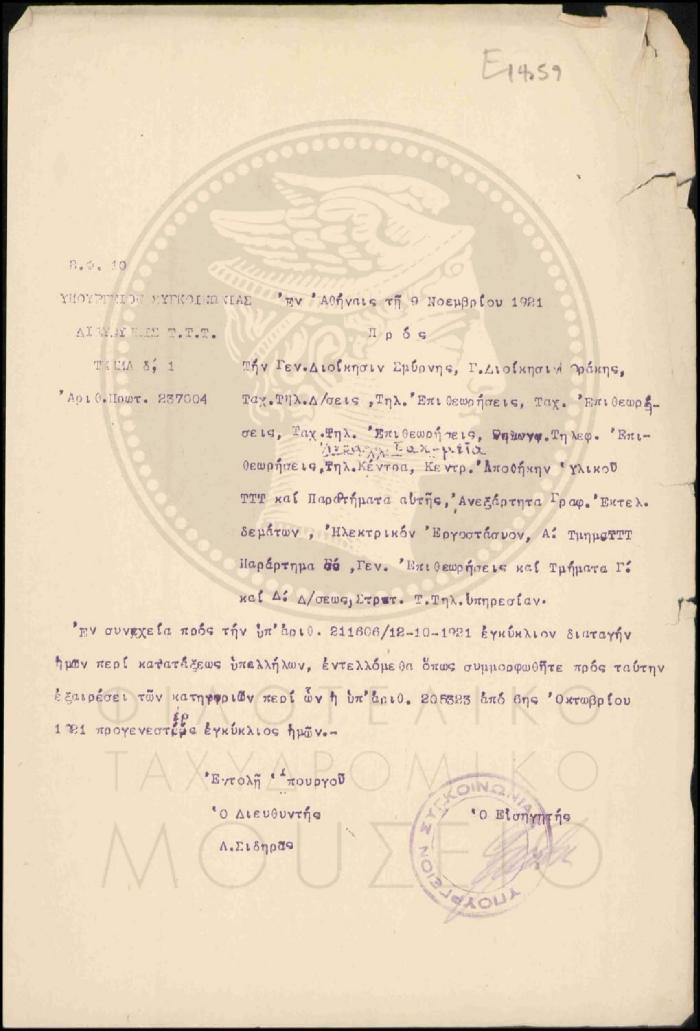 Ε1459
Β.Φ. 10
ΥΠΟΥΡΓΕΙΟΝ ΣΥΓΚΟΙΝΩΝΙΑΣ
Ἐν Ἀθήναις τῇ 9 Νοεμβρίου 1921
ΔΙΕΥΘΥΝΣΙΣ Τ.Τ.Τ.
Πρός
ΤΜΗΜΑ δ, 1
Ἀριθ.Πρωτ. 237004
Τήν Γεν.Διοίκησιν Σμύρνης, Γ.Διοίκησιν Θράκης,
Ταχ.Τηλ.Δ/σεις ,Τηλ.Ἐπιθεωρήσεις, Ταχ. Ἐπιθεωρή-
σεις, Ταχ.Τηλ. Ἐπιθεωρήσεις, Τηλεφ. Ἐπι-
θεωρήσεις,Τηλ.Κέντρα, Κεντρ.Ἀποθήκην Ὑλικοῦ
ΤΤΤ καί Παραρτήματα αὐτῆς,Ἀνεξάρτητα Γραφ.Ἐκτελ.
δεμάτων , Ἠλεκτρικόν Ἐργοστάσυον, Α. ΤμημςΤΤΤ
Παράρτημα ,Γεν. Ἐπιθεωρήσεις καί Τμήματα Γ.
καί Δ. Δ/σεως,Στρατ. Τ.Τηλ.ὑπηρεσίαν.
Ἐν συνεχεία πρός τήν ὑπ'ἀριθ. 211606/12-10-1921 ἐγκύκλιον διαταγήν
ἡμῶν περί κατατάξεως ὑπαλλήλων, ἐντελλόμεθα ὅπως συμμορφωθῆτε πρός ταύτην
ἐξαιρέσει τῶν κατηγοριῶν περί ὧν ἡ ὑπ'ἀριθ. 205323 ἀπό 6ης Ὀκτωβρίου
1921 προγενεστέρα ἐγκύκλιος ἡμῶν.-
Ἐντολῇ Ὑπουργοῦ
Ὁ Διευθυντής
Ὁ Εἰσηγητής
Λ.Σιδηρᾶς
ΥΠΟΥΡΓΕΙΟΝ ΣΥΓΚΟΙΝΩΝΙΑΣ
ΦΙΛΟΤΕΛΙΚΟ
ΤΑΧΥΔΡΟΜΙΚΟ
ΜΟΥΣΕΙΟ